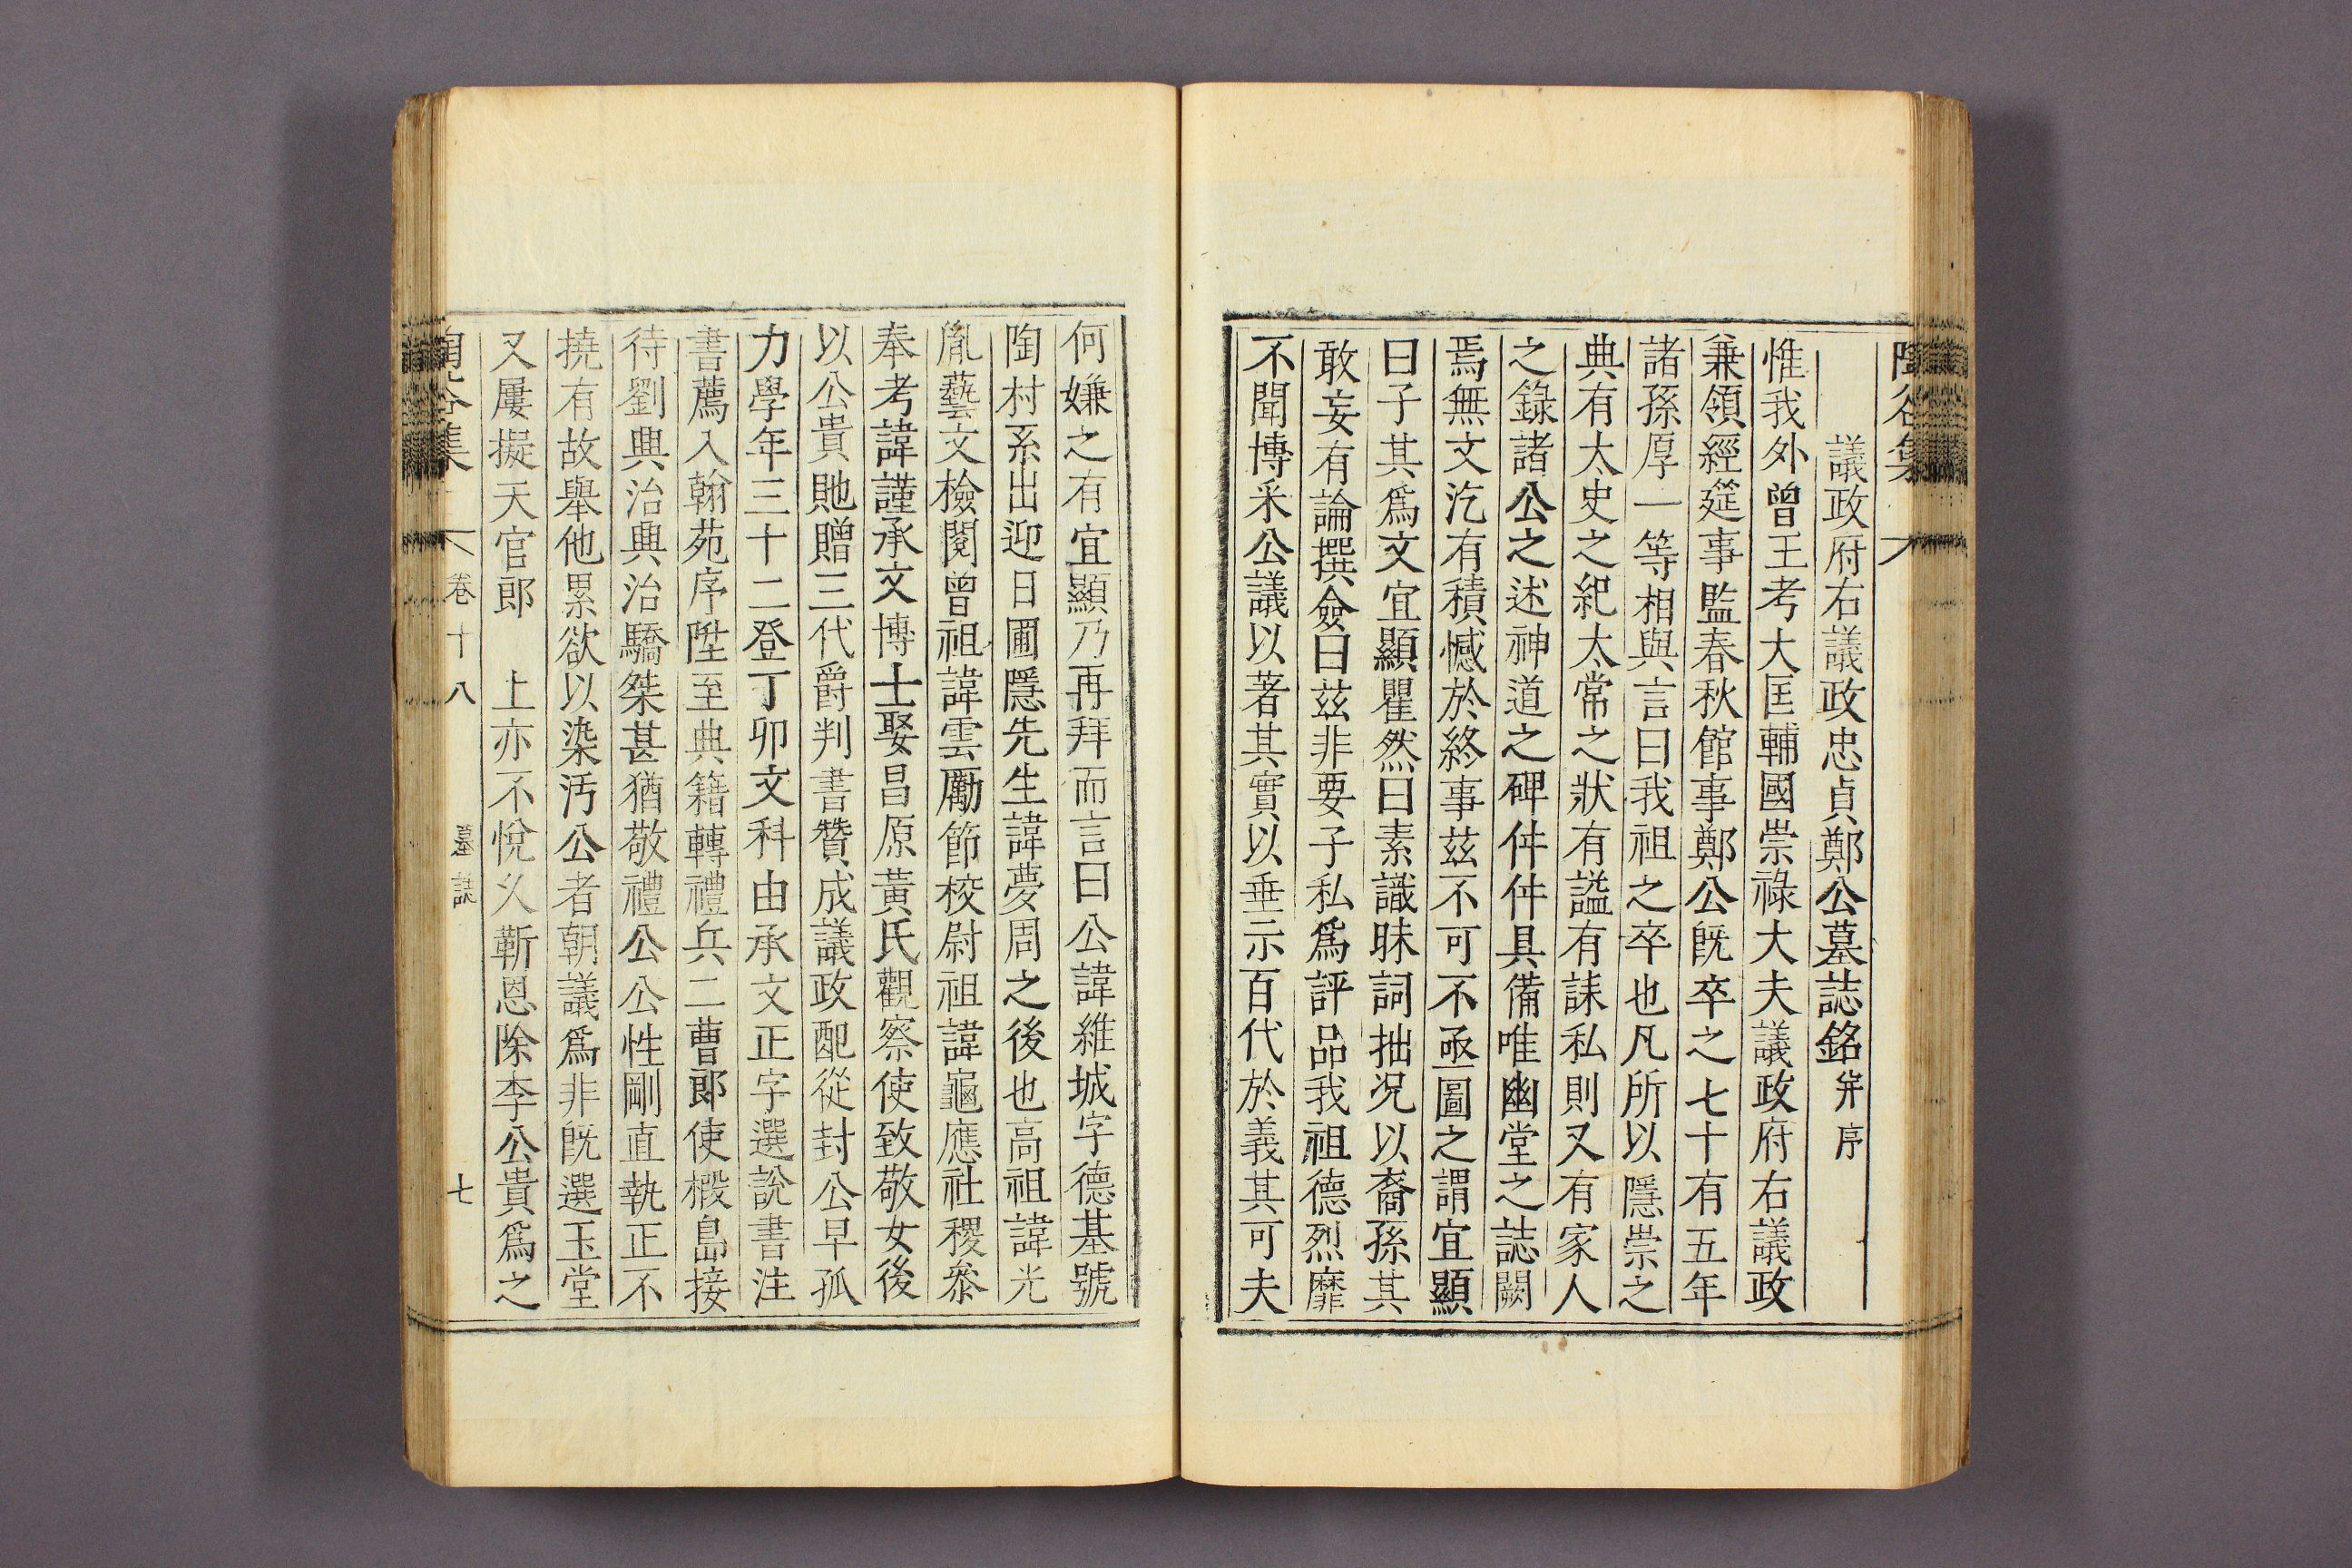 議政府右議政忠貞鄭公墓誌銘 幷序
惟我外曾王考大匡輔國崇祿大夫議政府右議政
兼領經筵事監春秋館事鄭公旣卒之七十有五年
諸孫厚一等相與言曰我祖之卒也凡所以隱崇之
典有太史之紀太常之狀有謚有誄私則又有家人
之錄諸公之述神道之碑件件具備唯幽堂之誌闕
焉無文汔有積憾於終事玆不可不亟圖之謂宜顯
曰子其爲文宜顯瞿然曰素識昧詞拙况以裔孫其
敢妄有論撰僉曰玆非要子私爲評品我祖德烈靡
不聞博采公議以著其實以垂示百代於義其可夫
何嫌之有宜顯乃再拜而言曰公諱維城字德基號
陶村系出迎日圃隱先生諱夢周之後也高祖諱光
胤藝文檢閱曾祖諱雲勵節校尉祖諱龜應社稷參
奉考諱謹承文博士娶昌原黃氏觀察使致敬女後
以公貴貤贈三代爵判書贊成議政配從封公早孤
力學年三十二登丁卯文科由承文正字選說書注
書薦入翰苑序陞至典籍轉禮兵二曹郞使椴島接
待劉興治興治驕桀甚猶敬禮公公性剛直執正不
撓有故舉他累欲以染汚公者朝議爲非旣選玉堂
又屢擬天官郎 上亦不悅久靳恩除李公貴爲之
陶谷集 卷十八 墓誌 七